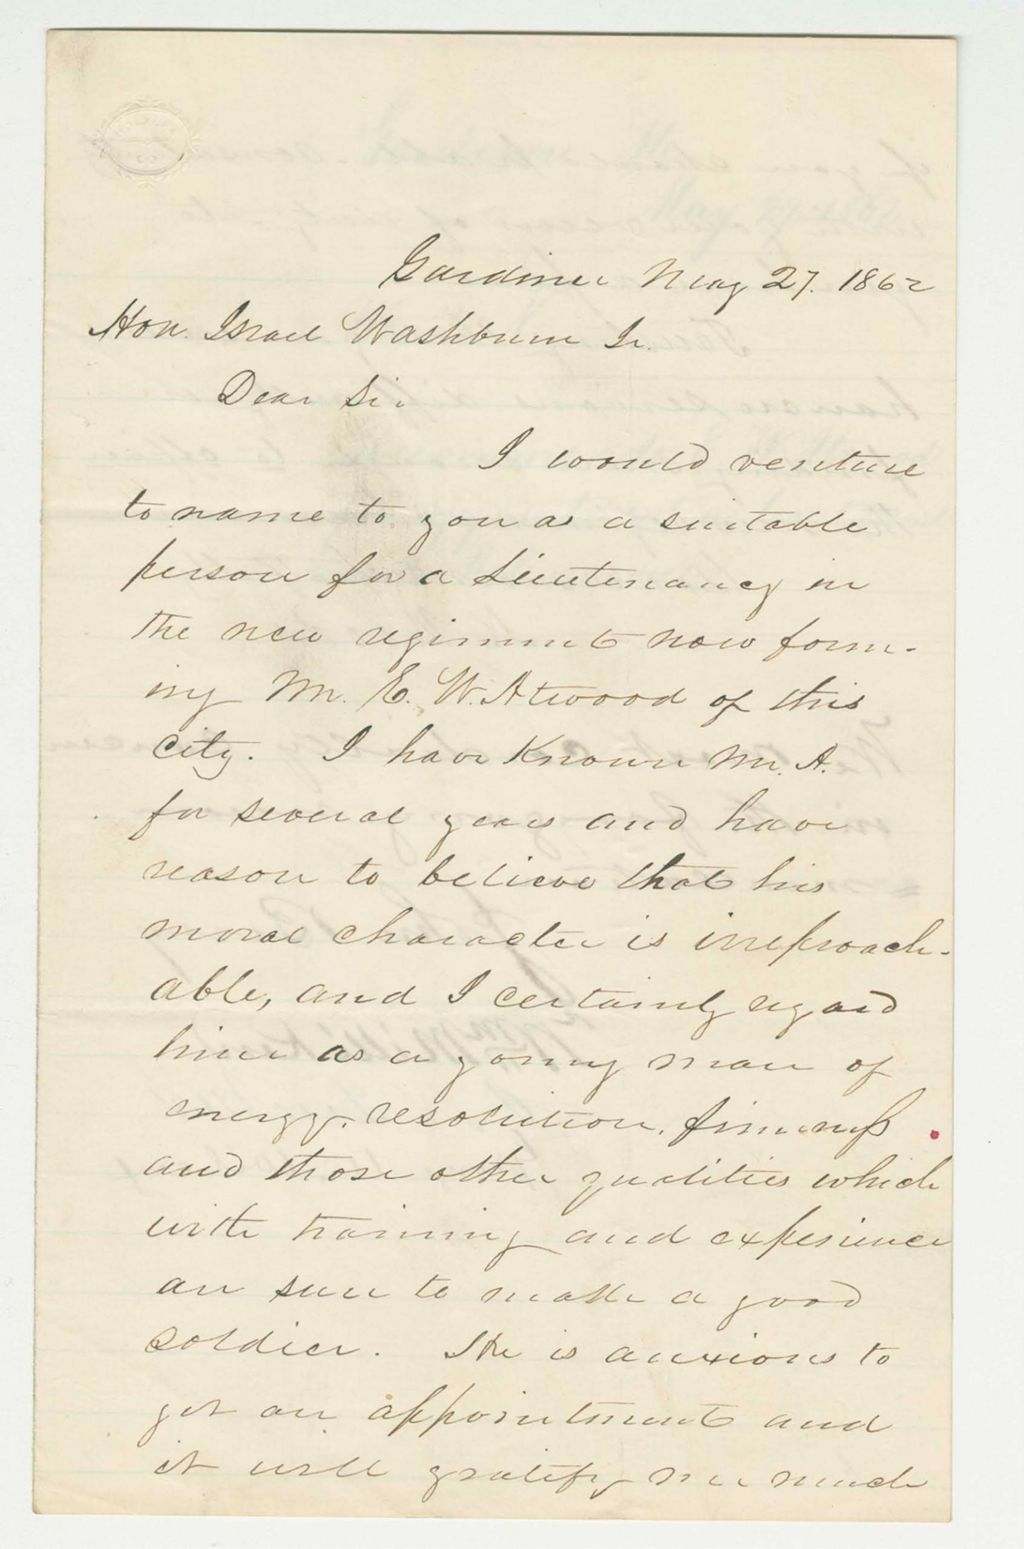 Gardiner May 27. 1862
Hon. Israel Washburn Jr.
Dear Sir
I would venture
to name to you as a suitable
person for a Lieutenancy in
the new regiment now form-
ing Mr. E. W. Atwood of this
city. I have known Mr. A.
for several years and have
reason to believe that his
moral character is irreproach-
able, and I certainly regard
him as a young man of
energy, resolution, firmness
and those other qualities which
with training and experience
are sure to make a good
soldier. He is anxious to
get an appointment and
it will gratify me much